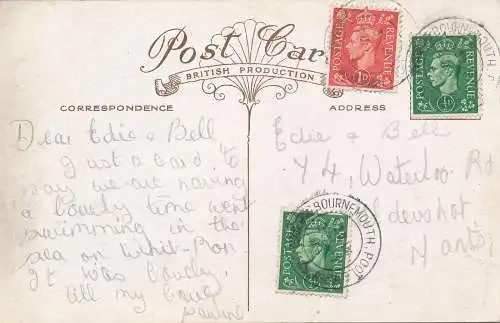 Post Car
BRITISH PRODUCTION
CORRESPONDENCE
ADDRESS
Dear Edie & Bell
Just a card to
say we are having
a lovely time went
swimming in the
sea on Whit-Mon
It was lovely,
All my love
Pauline
Edie & Bell
74, Waterloo Rd
ldershot
Hants
POSTAGE
REVENUE
1D
BOURNEMOUTH. P
POSTAGE
REVENUE
½D
BOURNEMOUTH. POOL
POSTAGE
REVENUE